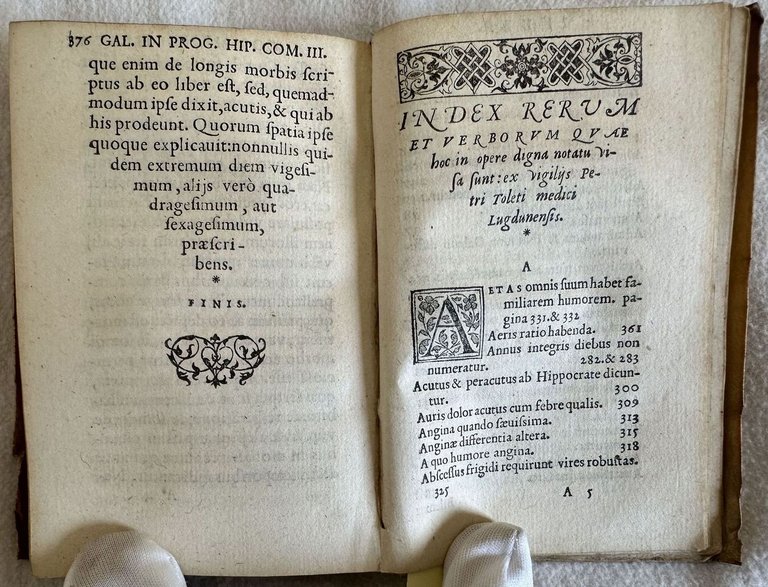 376 GAL. IN PROG. HIP. COM. III.
que enim de longis morbis scri-
ptus ab eo liber est, sed, quemad-
modum ipse dixit, acutis, & qui ab
his prodeunt. Quorum spatia ipse
quoque explicauit: nonnullis qui-
dem extremum diem vigesi-
mum, alijs verò qua-
dragesimum, aut
sexagesimum,
præscri-
bens.
*
FINIS.
INDEX RERUM
ET VERBORVM QVAE
hoc in opere digna notatu vi-
sa sunt: ex vigilijs Pe-
tri Toleti medici
Lugdunensis.
*
A
AETAS omnis suum habet fa-
miliarem humorem. pa-
gina 331. & 332
Aeris ratio habenda. 361
Annus integris diebus non
numeratur. 282. & 283
Acutus & peracutus ab Hippocrate dicun-
tur. 300
Auris dolor acutus cum febre qualis. 309
Angina quando sæuissima. 313
Anginæ differentia altera. 315
A quo humore angina. 318
Abscessus frigidi requirunt vires robustas.
325 A 5